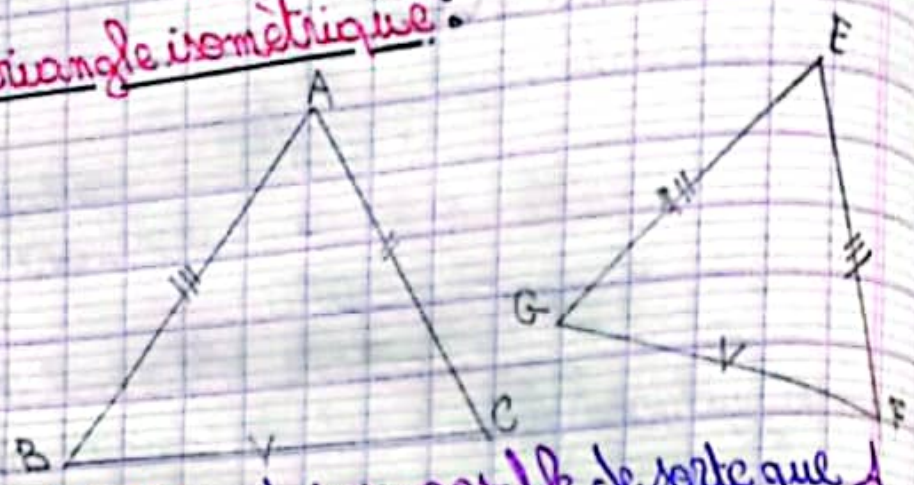 riangle isomètrique :
A
E
G
B
C
F
de sorte que